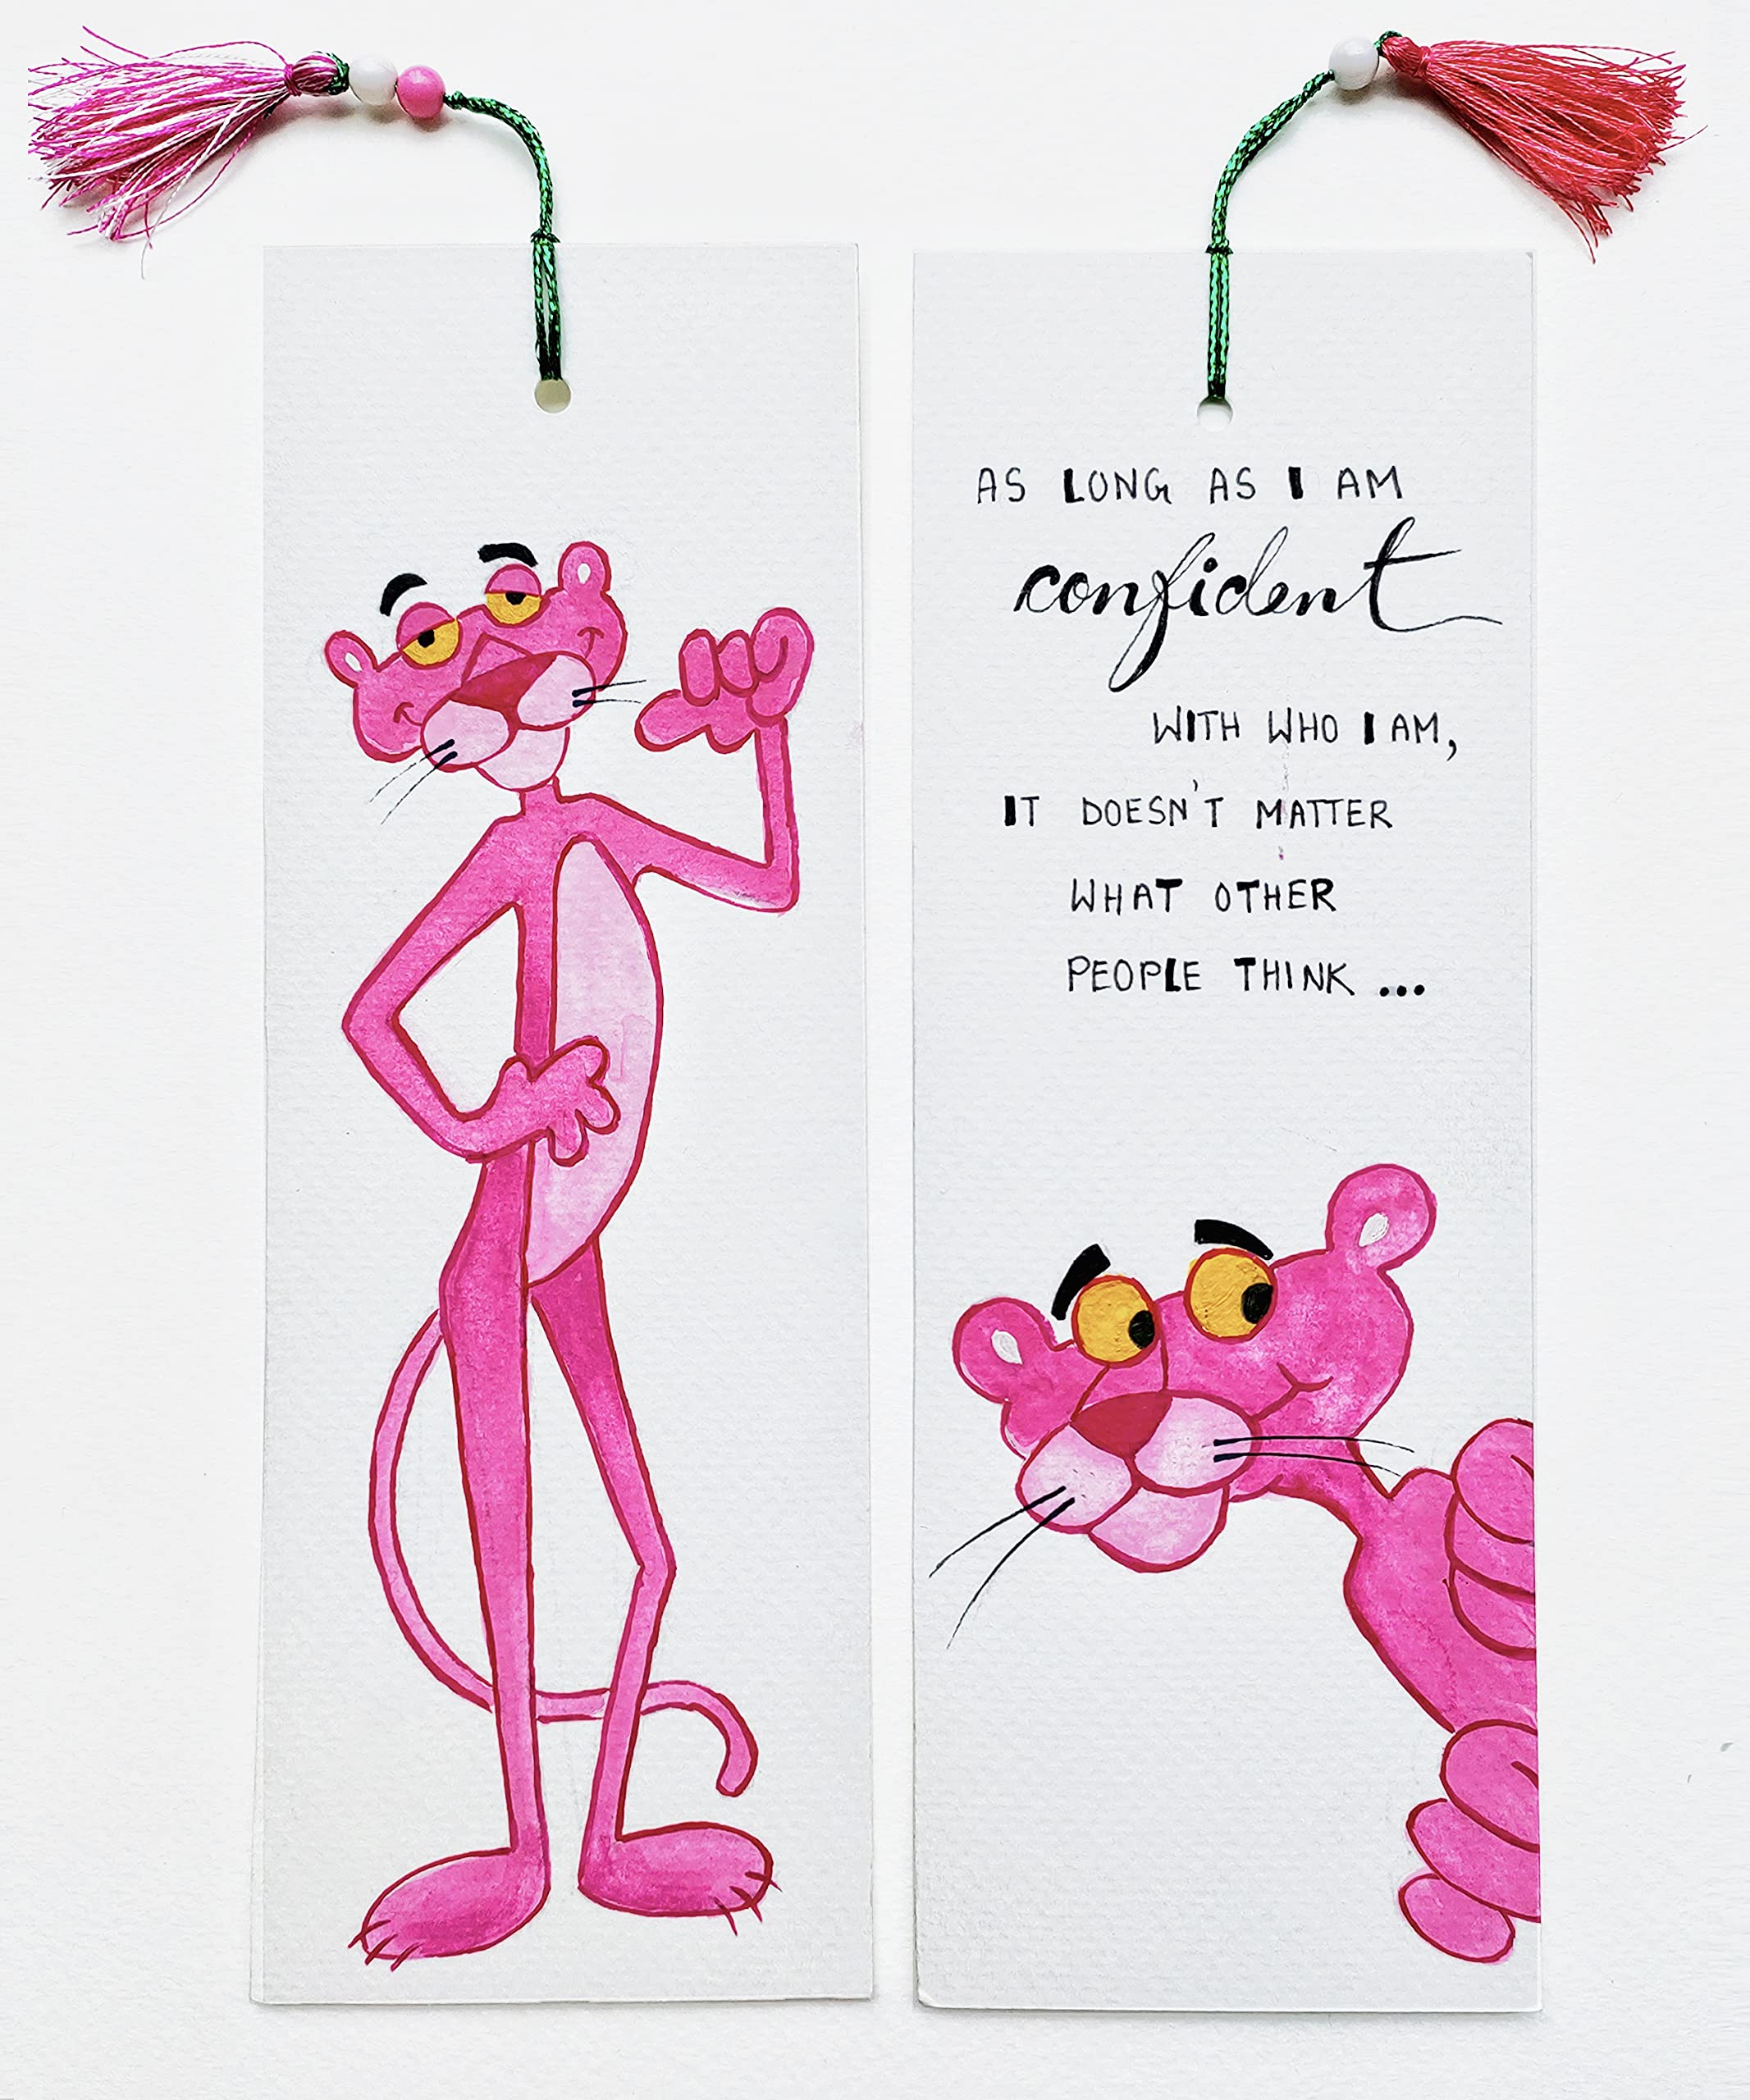 AS LONG AS I AM
confident
WITH WHO I AM,
IT DOESN'T MATTER
WHAT OTHER
PEOPLE THINK ...